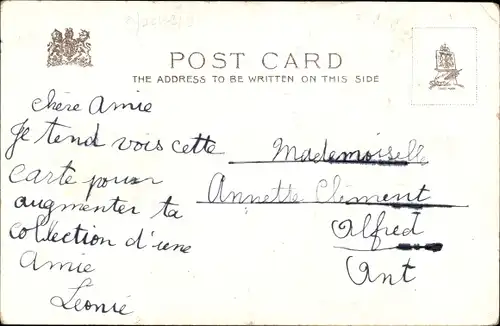 POST CARD
THE ADDRESS TO BE WRITTEN ON THIS SIDE
chère amie
Je tend vois cette
carte pour
augmenter ta
collection d'une
amie
Léonie
Mademoiselle
Annette Clément
Alfred
Ont